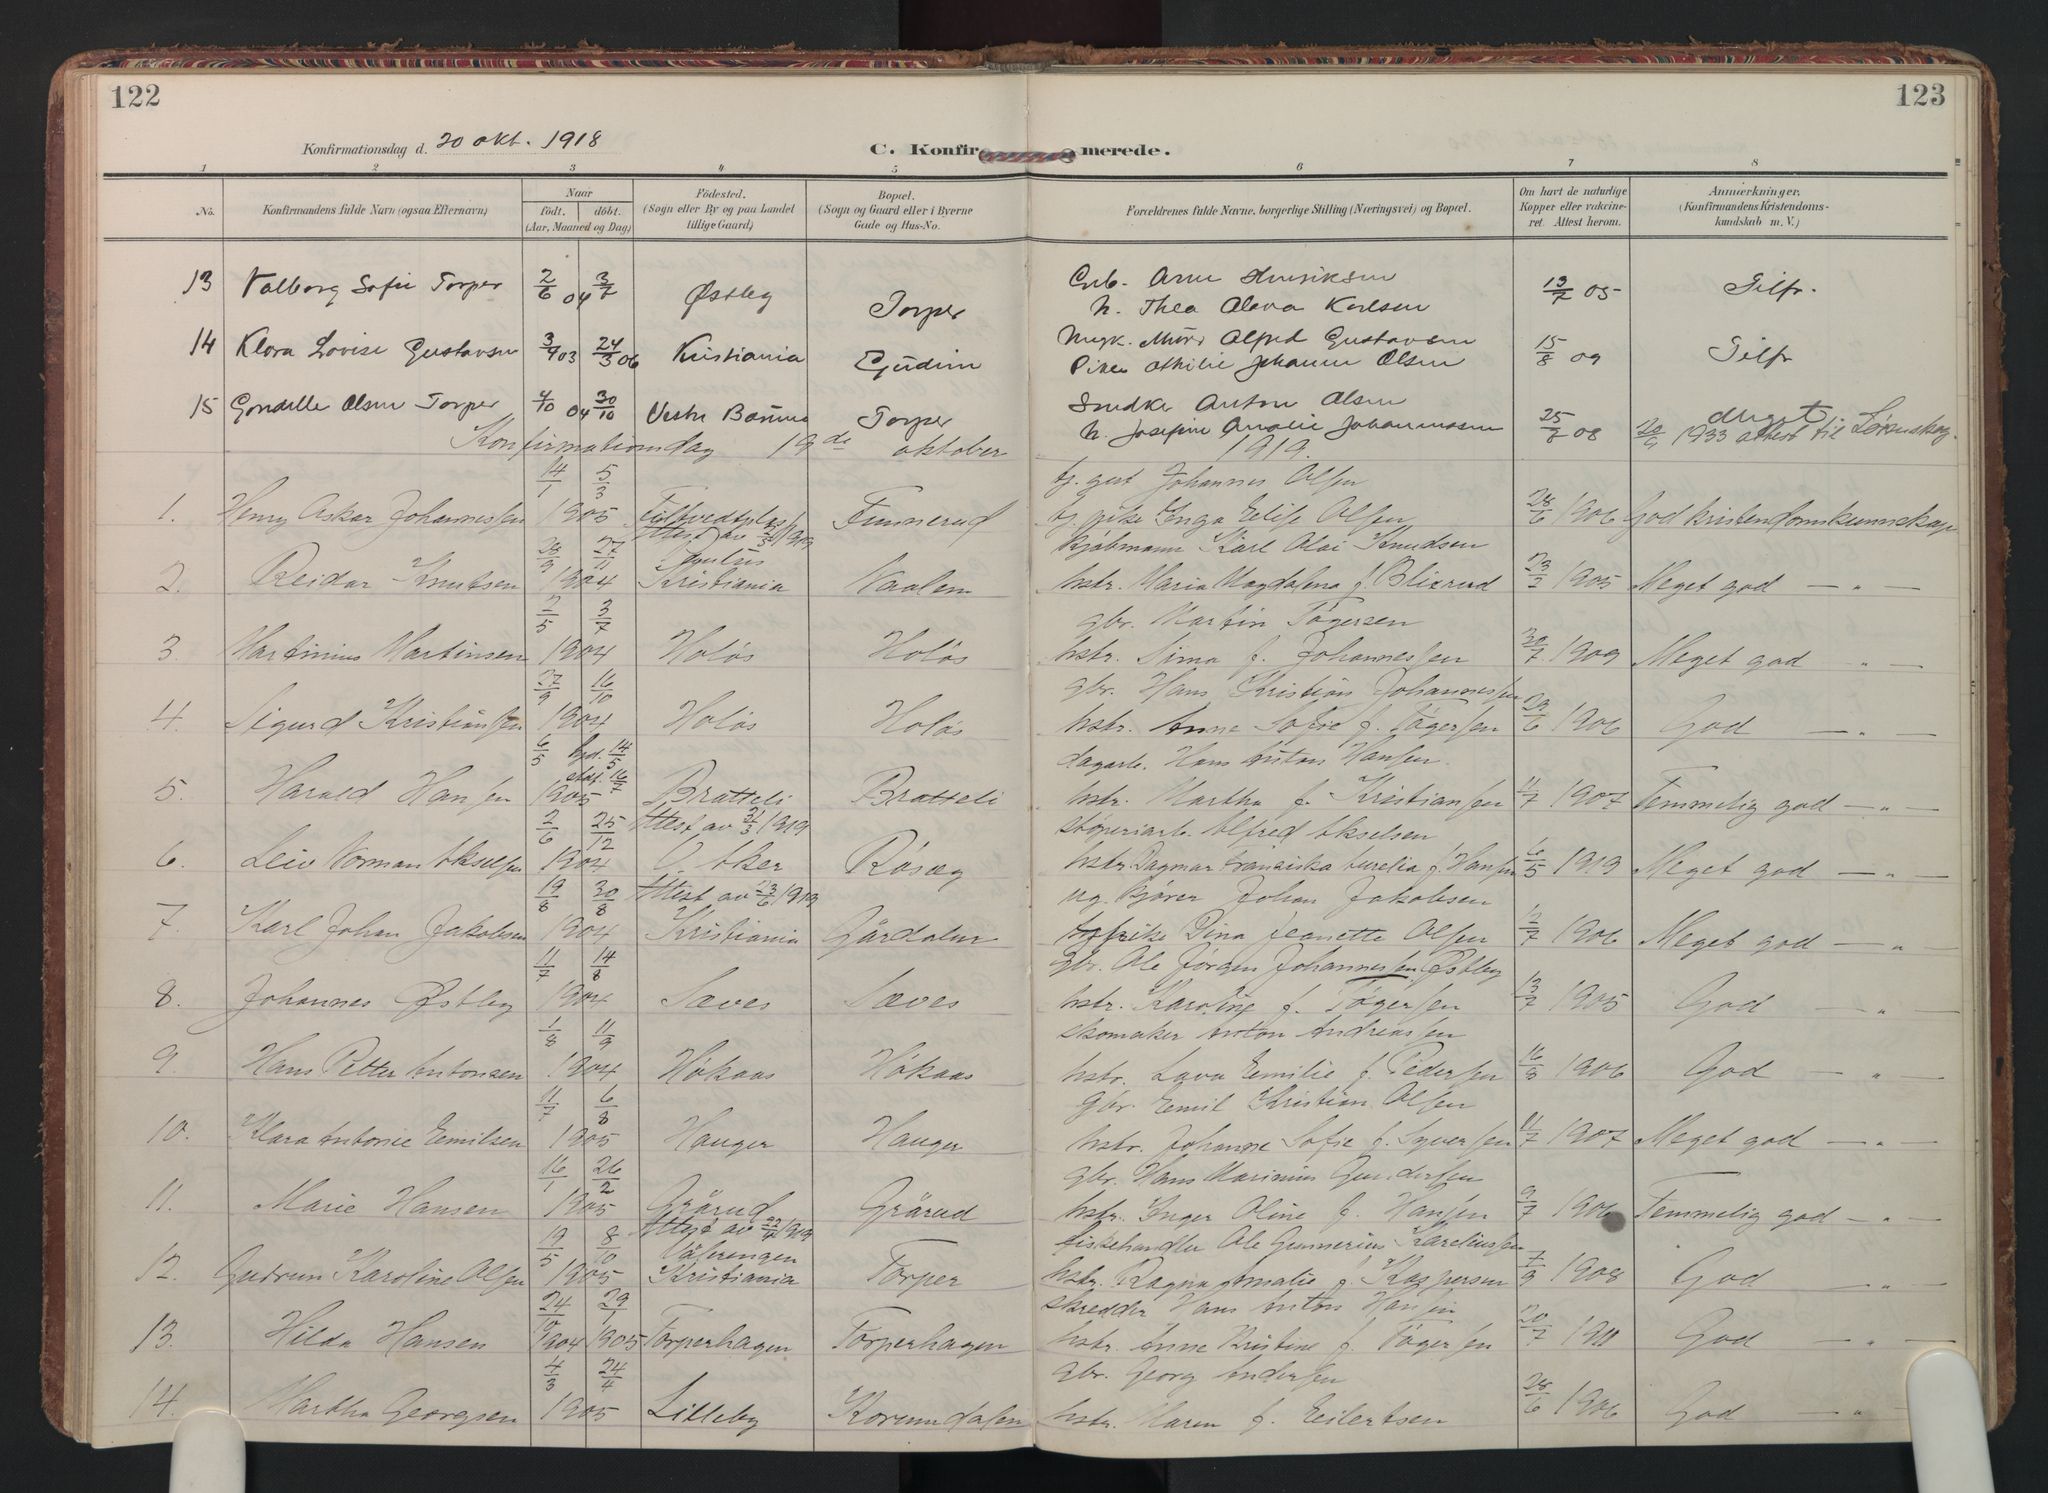 122
123
Konfirmationsdag d. 20 okt. 1918
C. Konfirmerede.
1 2 3 4 5 6 7 8
No. Konfirmandens fulde Navn (ogsaa Efternavn) Naar födt. döbt. (Aar, Maaned og Dag) Födested. (Sogn eller By og paa Landet tillige Gaard) Bopæl. (Sogn og Gaard eller i Byerne Gade og Hus-No. Forældrenes fulde Navne, borgerlige Stilling (Næringsvei) og Bopæl. Om havt de naturlige Kopper eller vakcineret. Attest herom. Anmærkninger. (Konfirmandens Kristendomskundskab m. V.)
13 Valborg Sofie Torper 2/6 04 3/7 Østby Torper Arne Henriksen
h. Thea Olava Karlsen 13/7 05 Tilfr.
14 Klara Lovise Gustavsen 3/9 03 24/3 06 Kristiania Gjudim Ungk. Murer Alfred Gustavsen
Pike Othilie Johanne Olsen 15/8 09 Tilfr
15 Gondelle Olsen Torper 4/10 04 30/10 Vestre Bærum Torper Snedker Anton Olsen
h. Josefine Amalie Johannessen 25/8 08 1933 attest til Lørenskog
Konfirmationsdag 19de oktober 1919.
1. Henry Oskar Johannessen 14/1 1905 5/3 Finnerud tj. gut Johannes Olsen
tj. pike Inga Elise Olsen 28/6 1906 God kristendomskunnskap
2. Reidar Knutsen 28/9 1904 27/11 Attest av 2/5 1919 Paulus Kristiania Vaalen Kjöbmann Karl Olai Knudsen
hstr. Maria Magdalena f. Blixrud 23/7 1905 Meget god — „ —
3. Martinius Martinsen 2/5 1904 3/7 Holös Holös gbr. Martin Tögersen
hstr. Sima f. Johannessen 30/7 1909 Meget god — „ —
4. Sigurd Kristiansen 27/9 1904 16/10 Holös Holös gbr. Hans Kristian Johannessen
hstr. Anne Sofie f. Tögersen 29/6 1906 God — „ —
5. Harald Hansen 6/5 1905 hjd. 14/5 stdf. 16/7 Bratteli Bratteli dagarb. Hans Anton Hansen.
hstr. Martha f. Kristiansen 11/7 1907 Temmelig god — „ —
6. Leiv Norman Akselsen 2/6 1904 25/12 Attest av 31/3 1919 Ö. Aker Rösæg støperiarb. Alfred Akselsen
hstr. Dagmar Franciska Aurelia f. Hansen 6/5 1919 Meget god — „ —
7. Karl Johan Jakobsen 19/8 1904 30/8 Attest av 23/6 1919 Kristiania Gårdalen ug. kjörer Johan Jakobsen
pike Dina Jeanette Olsen 12/7 1906 Meget god — „ —
8. Johannes Østby 11/7 1904 14/8 Sæves Sæves gbr. Ole Jörgen Johannessen Østby
hstr. Karoline f. Tögersen 13/7 1905 God — „ —
9. Hans Petter Antonsen 1/8 1904 11/9 Hökaas Hökaas skomaker Anton Andreassen
hstr. Lava Emilie f. Pedersen 16/8 1906 God — „ —
10. Klara Antonie Emilsen 11/7 1905 6/8 Hauger Hauger Gbr. Emil Kristian Olsen
hstr. Johanne Sofie f. Syversen 11/7 1907 Meget god — „ —
11. Marie Hansen 16/1 1905 26/2 Grårud Grårud gbr. Hans Marinius Gundersen
hstr. Inger Oline f. Hansen 9/7 1906 Temmelig god — „ —
12. Gudrun Karoline Olsen 19/5 1905 8/10 Vålerengen Kristiania Torper fiskehandler Ole Gunnerius Kareliussen
hstr. Ragna Amalie f. Kaspersen 7/9 1908 God — „ —
13. Hilda Hansen 24/10 1904 29/1 1905 Torperhagen Torperhagen skredder Hans Anton Hansen
hstr. Anne Kristine f. Tögersen 20/7 1911 God — „ —
14. Martha Georgsen 4/3 1905 24/4 Lilleby Korundalen gbr. Georg Andersen
hstr. Maren f. Eilertsen 28/6 1906 God — „ —